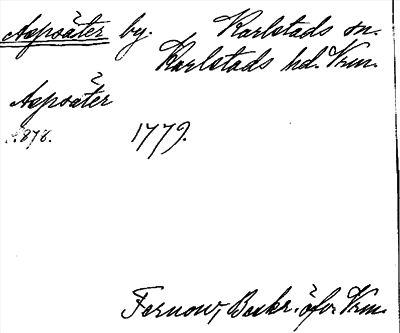 Aspsäter by. Karlstads sn.
Karlstads hd. Vrm.
Aspsäter
s. 878. 1779.
Fernow, Beskr. öfver Vrm.